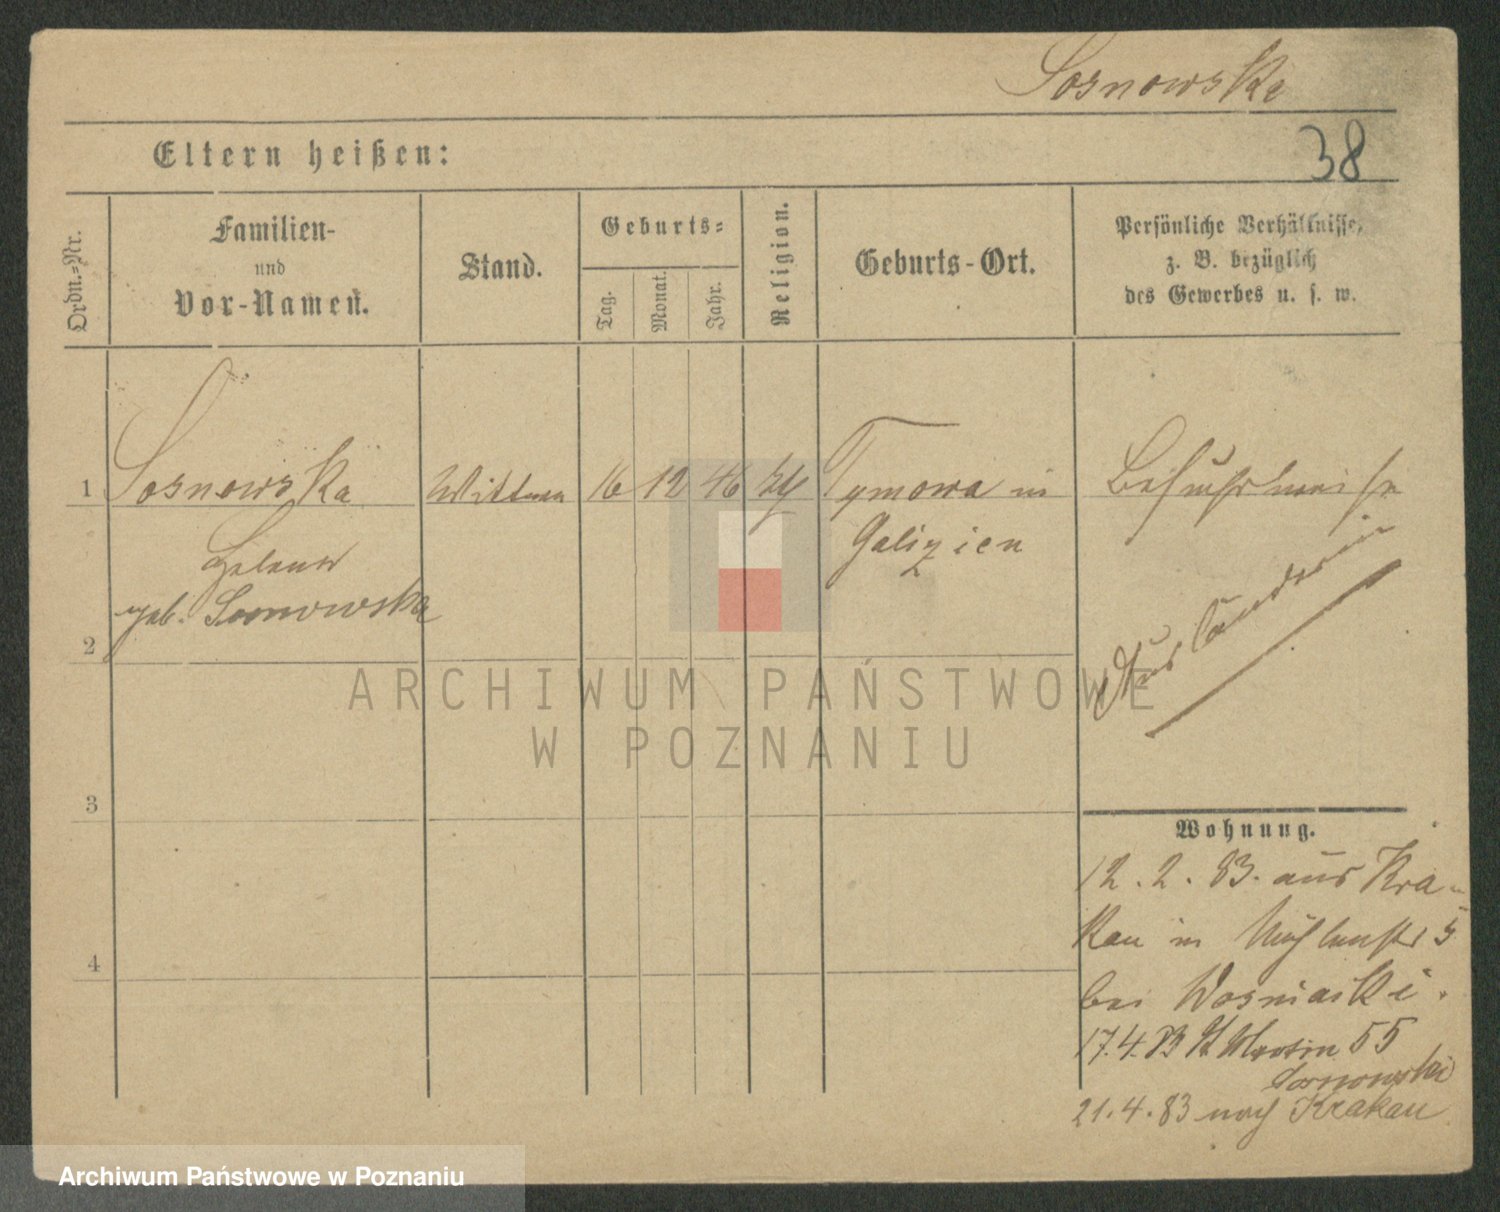 Sosnowska
Eltern heißen:
38
Ordn.-Nr.
Familien-
und
Vor-Namen.
Stand.
Geburts-
Tag.
Monat.
Jahr.
Religion.
Geburts-Ort.
Persönliche Verhältnisse,
z. B. bezüglich
des Gewerbes u. s. w.
1
Sosnowska
Wittwe
16
12
46
Tymowa in
Galizien
Besuchsweise
Helena
geb. Sosnowska
Ausländerin
2
3
4
Wohnung.
12. 2. 83. aus Kra-
kau in Mühlenstr 5
bei Wosniacki.
17.4.83 St Martin 55
Sosnowski
21.4.83 nach Krakau
ARCHIWUM PAŃSTWOWE
W POZNANIU
Archiwum Państwowe w Poznaniu